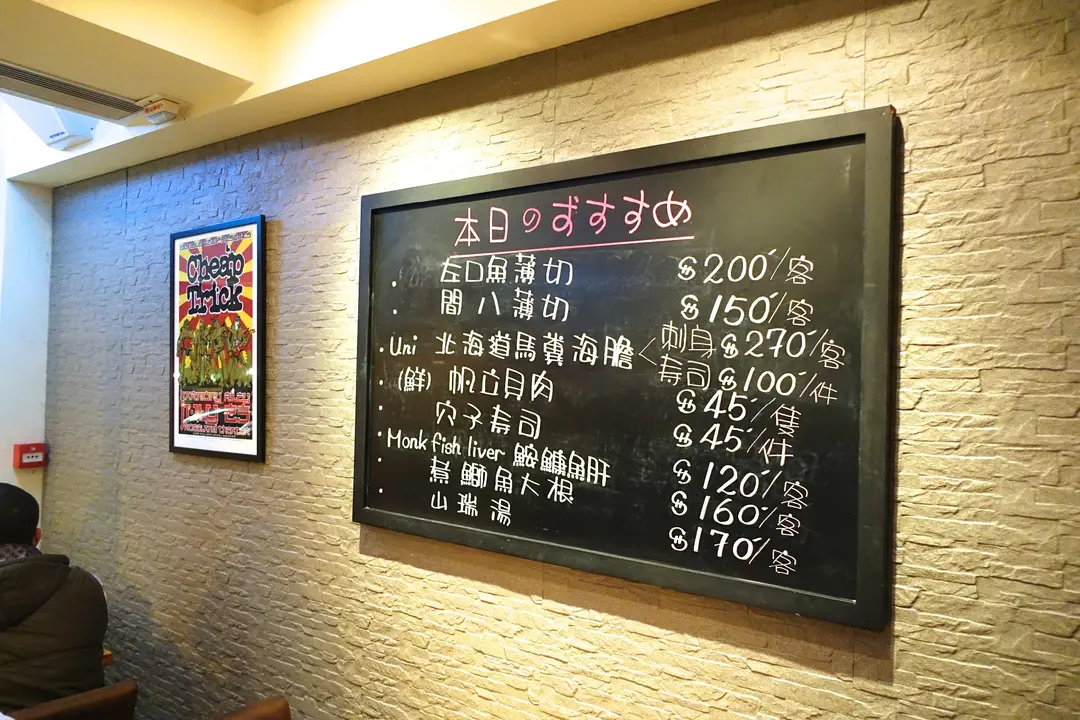 Cheap
Trick
本日のおすすめ
・左口魚薄切 $200/客
・間八薄切 $150/客
・Uni 北海道馬糞海膽 < 刺身 $270/客
寿司 $100/件
・(鮮) 帆立貝肉 $45/隻
・穴子寿司 $45/件
・Monk fish liver 鮟鱇魚肝 $120/客
・煮鰤魚大根 $160/客
・山瑞湯 $170/客